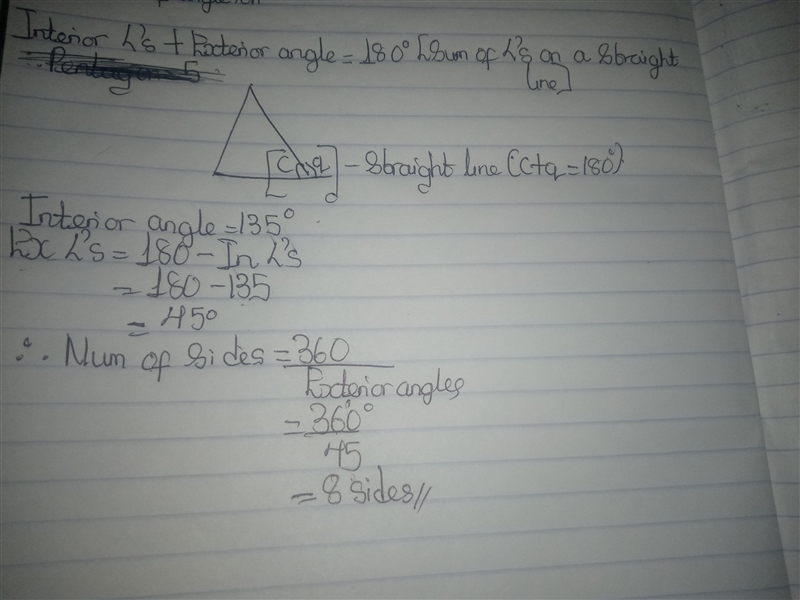 Interior L's + Exterior angle = 180° [Sum of L's on a Straight
line]
Pentagon 5
[C q] - Straight line (C+q = 180°)
Interior angle = 135°
Ex L's = 180 - In L's
= 180 - 135
= 45°
∴ Num of Sides = 360
Exterior angles
= 360°
45
= 8 sides//